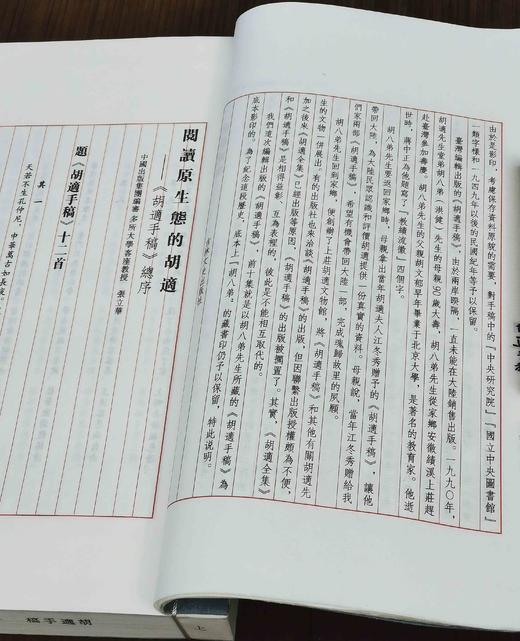 由於是影印，考慮保存資料原貌的需要，對手稿中的『中央研究院』『國立中央圖書館』
一類字樣和一九四九年以後的民國紀年等予以保留。
臺灣編輯出版的《胡適手稿》，由於兩岸睽隔，一直未能在大陸銷售出版。一九九〇年，
胡適先生堂弟胡八弟（洪健）先生的母親90歲大壽，胡八弟先生從家鄉安徽績溪上莊趕
赴臺灣參加壽慶。胡八弟先生的父親胡文郁早年畢業于北京大學，是著名的教育家。他逝
世時，蔣中正為他題寫了『教績流徽』四個字。
胡八弟先生要返回家鄉時，母親拿出當年胡適夫人江冬秀贈予的《胡適手稿》，讓他
帶回大陸，為大陸民眾認識和評價胡適提供一份真實的資料。母親說，當年江冬秀贈給我
們家兩部《胡適手稿》，希望有機會帶回大陸一部，完成魂歸故里的夙願。
胡八弟先生回到家鄉，便創辦了上莊胡適文物館，將《胡適手稿》和其他有關胡適先
生的文物一併展出，有的出版社也來洽談《胡適手稿》的出版，但因聯繫出版授權頗為不便，
加之後來《胡適全集》已經出版等原因，《胡適手稿》的出版被擱置了。其實，《胡適全集》
和《胡適手稿》是相得益彰、互為表裡的，彼此是不能相互取代的。
我們這次編輯出版的《胡適手稿》，前十集就是以胡八弟先生所藏的《胡適手稿》為
底本影印的。為了紀念這段歷史，底本上『胡八弟』的藏書印仍予以保留，特此说明。
閱讀原生態的胡適
——《胡適手稿》總序
中國出版集團編審 多所大學客座教授 張立華
題《胡適手稿》十二首
其一
天若不生孔仲尼，中華萬古如長夜。
胡適手稿
上